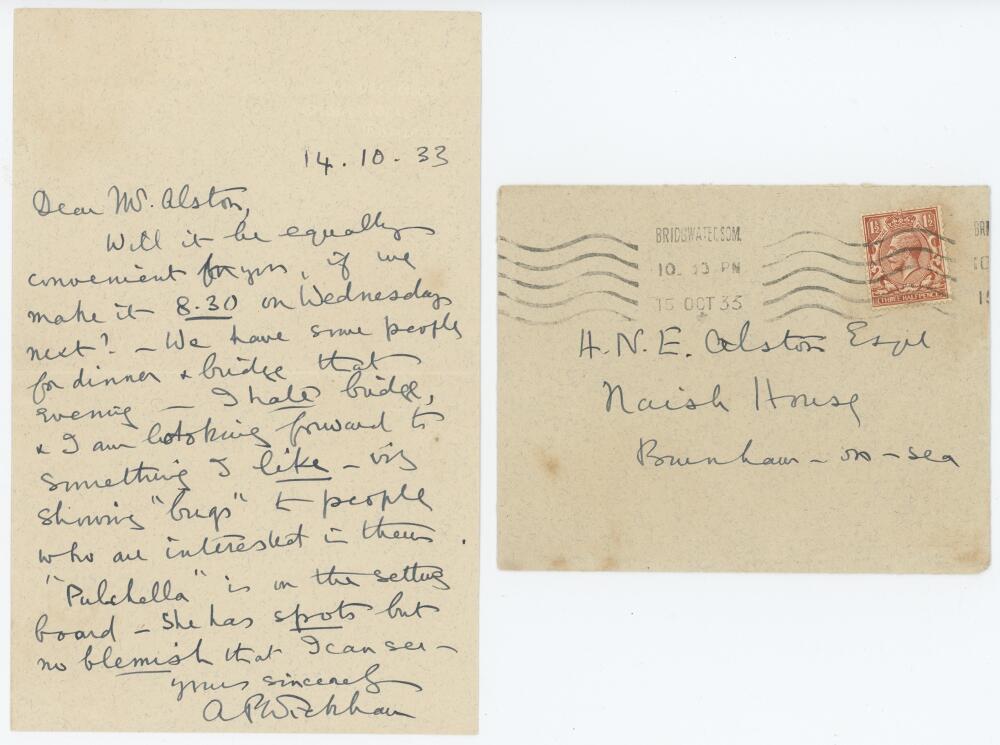 14.10-33
Dear Mr. Alston,
Will it be equally
convenient for you, if we
make it 8.30 on Wednesday
next? - We have some people
for dinner & bridge that
evening - I hate bridge,
& I am looking forward to
something I like - viz
showing "bugs" to people
who are interested in them.
"Pulchella" is on the setting
board - She has spots but
no blemish that I can see -
yours sincerely
A P Wickham
BRIDGWATER.SOM.
10. 13 PM
15 OCT 33
1½ 1½
THREE HALFPENCE
BRI
10
15
H.N.E. Alston Esqre
Naish House
Burnham-on-sea